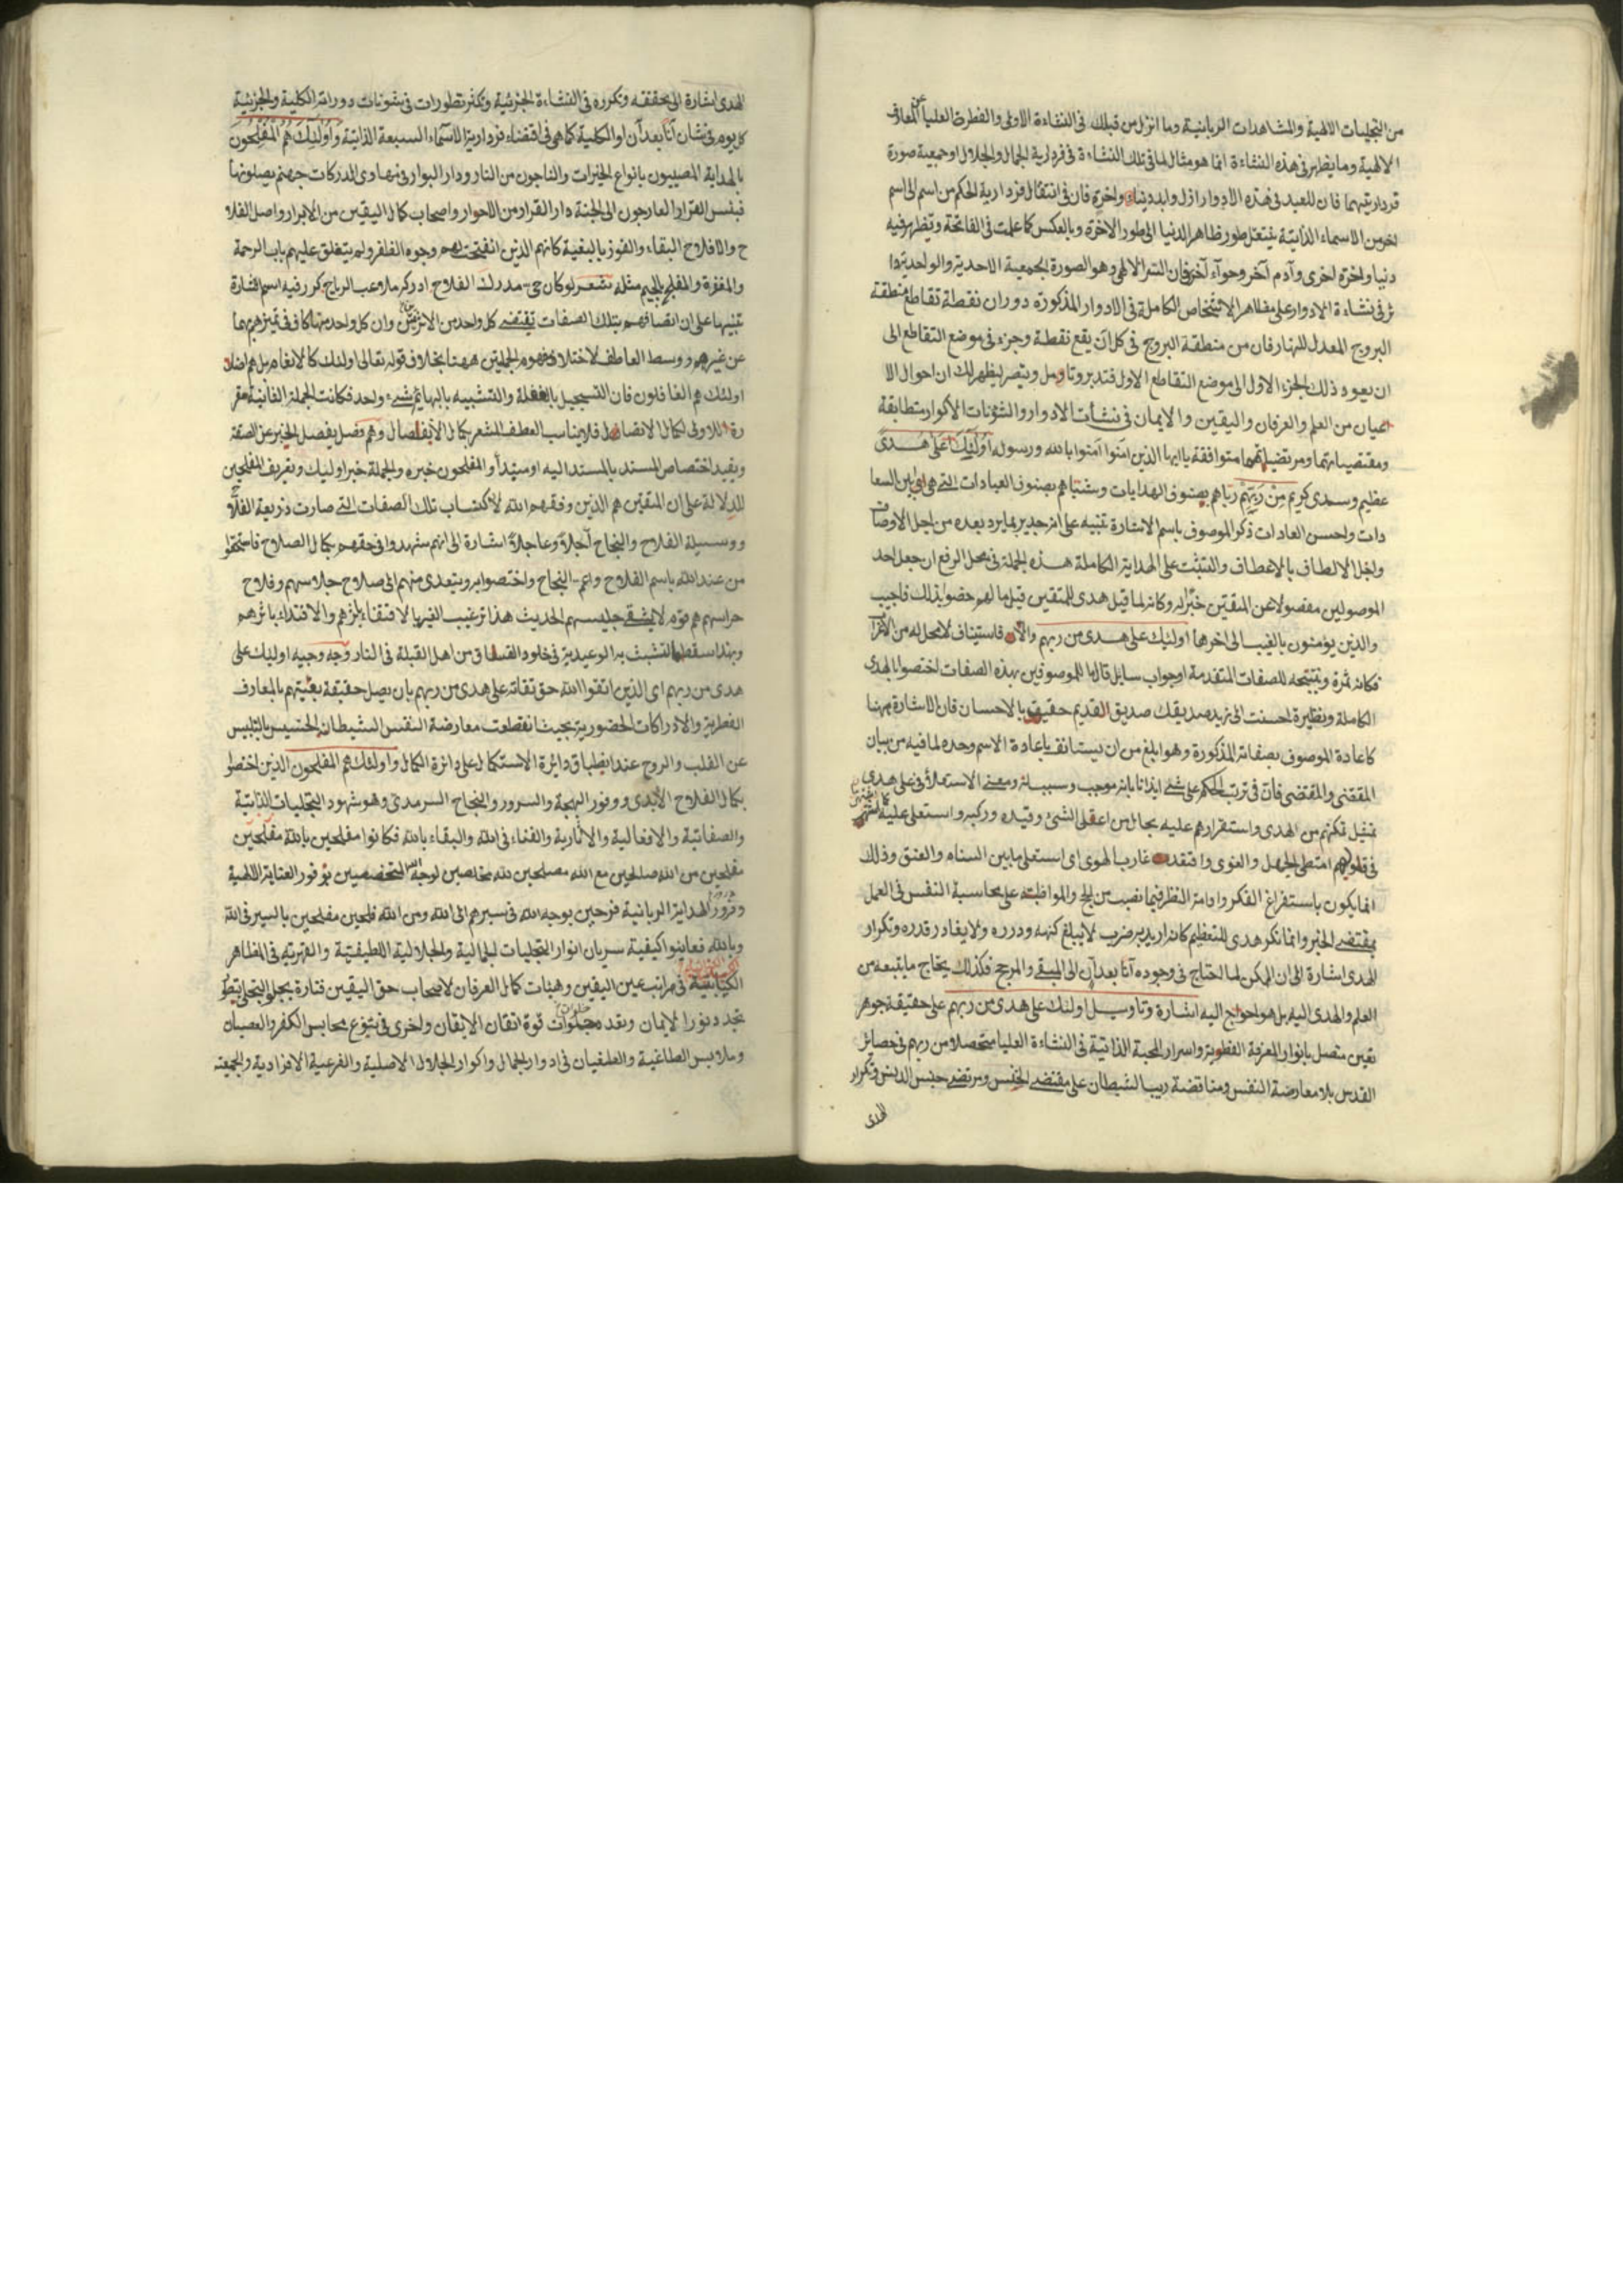 من التجليات الالهية والمشاهدات الربانية وما انزل من قبلك فى النشاءة الاولى والفطرة العليا عن المعارف
الالهية وما يظهر فى هذه النشاءة انما هو مثال لما فى تلك النشاءة فى فردارية الجمال والجلال او جمعية صورة
فرداريتهما فان للعبد فى هذه الادوار ازل وابد ودنيا واخرة فان فى انتقال فردارية الحكم من اسم الى اسم
اخر من الاسماء الذاتية ينتقل طور ظاهر الدنيا الى طور الاخرة وبالعكس كما علمت فى الفاتحة ويظهر فيه
دنيا واخرة اخرى وآدم آخر وحوآء آخر فان السر الالهى وهو الصورة الجمعية الاحدية والواحدية
فى نشاءة الادوار على مظاهر الاشخاص الكاملة فى الادوار المذكورة دوران نقطة تقاطع منطقة
البروج المعدل للنهار فان من منطقة البروج فى كل آن يقع نقطة وجزء فى موضع التقاطع الى
ان يعود ذلك الجزء الاول الى موضع التقاطع الاول فتدبر وتأمل وتبصر ليظهر لك ان احوال الا
عيان من العلم والعرفان واليقين والايمان فى نشأت الادوار والشؤنات الاكوار متطابقة
ومقتضياتهما ومرتضياتهما متوافقة ياايها الذين امنوا آمنوا بالله ورسوله اُولَئِكَ عَلَى هُدىً
عظيم وسدى كريم مِنْ رَبِّهِمْ رباهم بصنوف الهدايات وبصنوف العبادات التى هى السعا
دات واحسن العادات ذكر الموصوف باسم الاشارة تنبيه على انه جدير بما يرد بعده من اجل الاوصاف
واجل الالطاف بالاعطاف والتثبت على الهداية الكاملة هذه الجملة فى محل الرفع ان جعل احد
الموصولين مفصولا عن المتقين خبر له وكانه لما قيل هدى للمتقين قيل ما لهم خصوا بذلك فاجيب
والذين يؤمنون بالغيب الى اخرها اولئك على هدى من ربهم والا فاستيناف لا محل له من الاعراب
فكانه ثمرة ونتيجة للصفات المتقدمة او جواب سايل قال ما للموصوفين بهذه الصفات اختصوا بالهدى
الكاملة ونظيره احسنت الى زيد صديقك القديم حقيق بالاحسان فان الاشارة ههنا
كاعادة الموصوف بصفاته المذكورة وهو ابلغ من ان يستانف باعادة الاسم وحده لما فيه من بيان
المقتضى والمقتضى فان فى ترتب الحكم على شئ ايذانا بانه موجبه وسببه ومعنى الاستعلاء فى على هدى
تمثيل تمكنهم من الهدى واستقرارهم عليه بحال من اعتلى الشئ وقيده وركبه واستعلى عليه
فى قلوبهم امتطى الجهل والغوى واقتعد غارب الهوى اى استعلى ما بين السنام والعنق وذلك
انما يكون باستفراغ الفكر وادامة النظر فيما نصب من الحجج والمواظبة على محاسبة النفس فى العمل
بمقتضى الخبر وانما نكر هدى للتعظيم كانه اريد به ضرب لا يبلغ كنهه ودرره ولا يغادر قدره وتكرار
الهدى اشارة الى ان الممكن لما احتاج فى وجوده آنا بعد آن الى المبقى والمرجح فكذلك يحتاج ما يتبعه من
العلم والهدى اليه بل هو احوج اليه اشارة وتاويل اولئك على هدى من ربهم على حقيقة جوهر
يقين متصل بانوار المعرفة الفطرية واسرار المحبة الذاتية فى النشاءة العليا متحصلا من ربهم فى حصائر
القدس بلا معارضة النفس ومناقضة ريب الشيطان على مقتضى الجنس ومرتضى وتكرار
الهدى
الهدى اشارة الى تحققه وتكرره فى النشاءة الجزئية وتكثر تطورات فى شونات دوراته الكلية والجزئية
كل يوم فى شان آنا بعد آن او الكلية كما هى فى اقتضاء فردارية الاسماء السبعة الذاتية وَاُولَئِكَ هُمُ الْمُفْلِحُونَ
بالهداية المصيبون بانواع الخيرات والناجون من النار ودار البوار فى مهاوى الدركات جهنم يصلونها
فبئس القرار العارجون الى الجنة دار القرار من الاحرار واصحاب كمال اليقين من الابرار واصل الفلا
ح والافلاح البقاء والفوز بالبغية كانهم الذين انفتحت لهم وجوه الظفر ولم يتغلق عليهم باب الرحمة
والمغفرة والمفلج بالجيم مثله شعر لو كان حى مدرك الفلاح ادركه ملاعب الرماح كرر فيه اسم اشارة
تنبيها على ان اتصافهم بتلك الصفات تقتضى كل واحد من الاثرتين وان كل واحد منها كاف فى تميزهم بها
عن غيرهم ووسط العاطف لاختلاف مفهوم الجملتين ههنا بخلاف قوله تعالى اولئك كالانعام بل هم اضل
اولئك هم الغافلون فان التسجيل بالغفلة والتشبيه بالبهايم شئ واحد فكانت الجملة الثانية مقر
رة للاولى لكمال الاتصال فلا يناسب العطف المشعر بكمال الانفصال وهم فصل يفصل الخبر عن الصفة
ويفيد اختصاص المسند بالمسند اليه او مبتدأ والمفلحون خبره والجملة خبر اوليك وتعريف المفلحين
للدلالة على ان المتقين هم الذين وفقهم الله لاكتساب تلك الصفات التى صارت ذريعة الفلاح
ووسيلة الفلاح والنجاح آجلاً وعاجلاً اشارة الى انهم شهدوا فى حقهم بكمال الصلاح فاستحقوا
من عند الله باسم الفلاح واعم النجاح واختصوا به ويتعدى منهم الى صلاح جلاسهم وفلاح
حراسهم هم قوم لا يشقى جليسهم الحديث هذا ترغيب الغير بالاقتفاء باثرهم والاقتداء باثرهم
وبهذا سقط التشبث به الوعيدية فى خلود الفساق من اهل القبلة فى النار وجه وجيه اوليك على
هدى من ربهم اى الذين اتقوا الله حق تقاته على هدى من ربهم بان يصل حقيقة بغيتهم بالمعارف
الفطرية والادراكات الحضورية بحيث انقطعت معارضة النفس الشيطان الخسيس بالتلبيس
عن القلب والروح عند انطباق دايرة الاستكمال على دائرة الكمال واولئك هم المفلحون الذين اختصوا
بكمال الفلاح الابدى ووفور البهجة والسرور والنجاح السرمدى وهو شهود التجليات الذاتية
والصفاتية والافعالية والاثارية والفناء فى الله والبقاء بالله فكانوا مفلحين بالله مفلحين
مفلحين من الله صالحين مع الله مصلحين لله مخلصين لوجه الله المتخصصين بوفور العناية الالهية
الهداية الربانية فرحين بوجه الله فى سيرهم الى الله ومن الله فلحين مفلحين بالسير فى الله
وبالله فعاينوا كيفية سريان انوار التجليات الجمالية والجلالية اللطيفية والقهرية فى المظاهر
الكيانية فى مراتب عين اليقين وهيئات كمال العرفان لاصحاب حق اليقين فتارة بجلو التجلى
تجدد نور الايمان ونقد قوة اتقان الايقان واخرى فى تنوع محابس الكفر والعصيان
وملابس الطاغية والطغيان فى ادوار الجمال واكوار الجلال الاصلية والفرعية الافرادية والجمعية